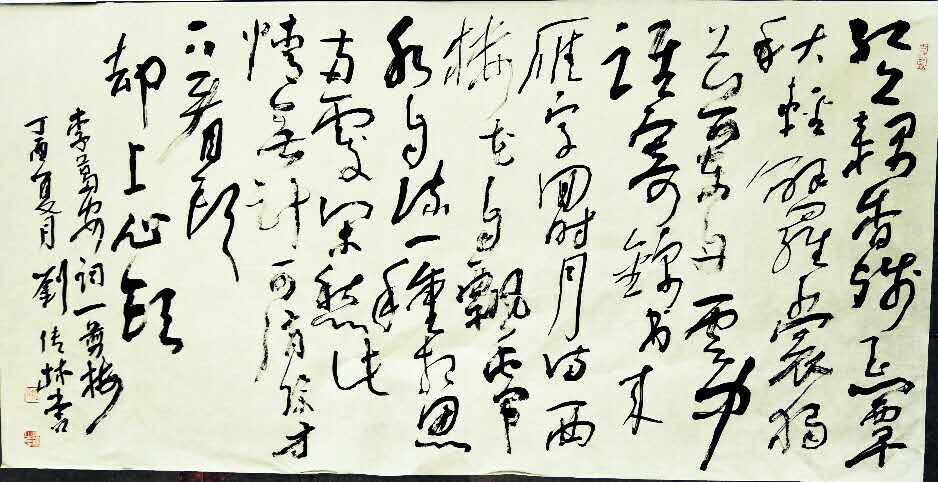 红藕香残玉簟
秋轻解羅裳独
上兰舟雲中
谁寄锦书来
雁字回时月满西
楼花自飘零
水自流一种相思
两处闲愁此
情无计可消除才
下眉头
却上心头
李易安词一剪梅
丁酉夏月劉传林书